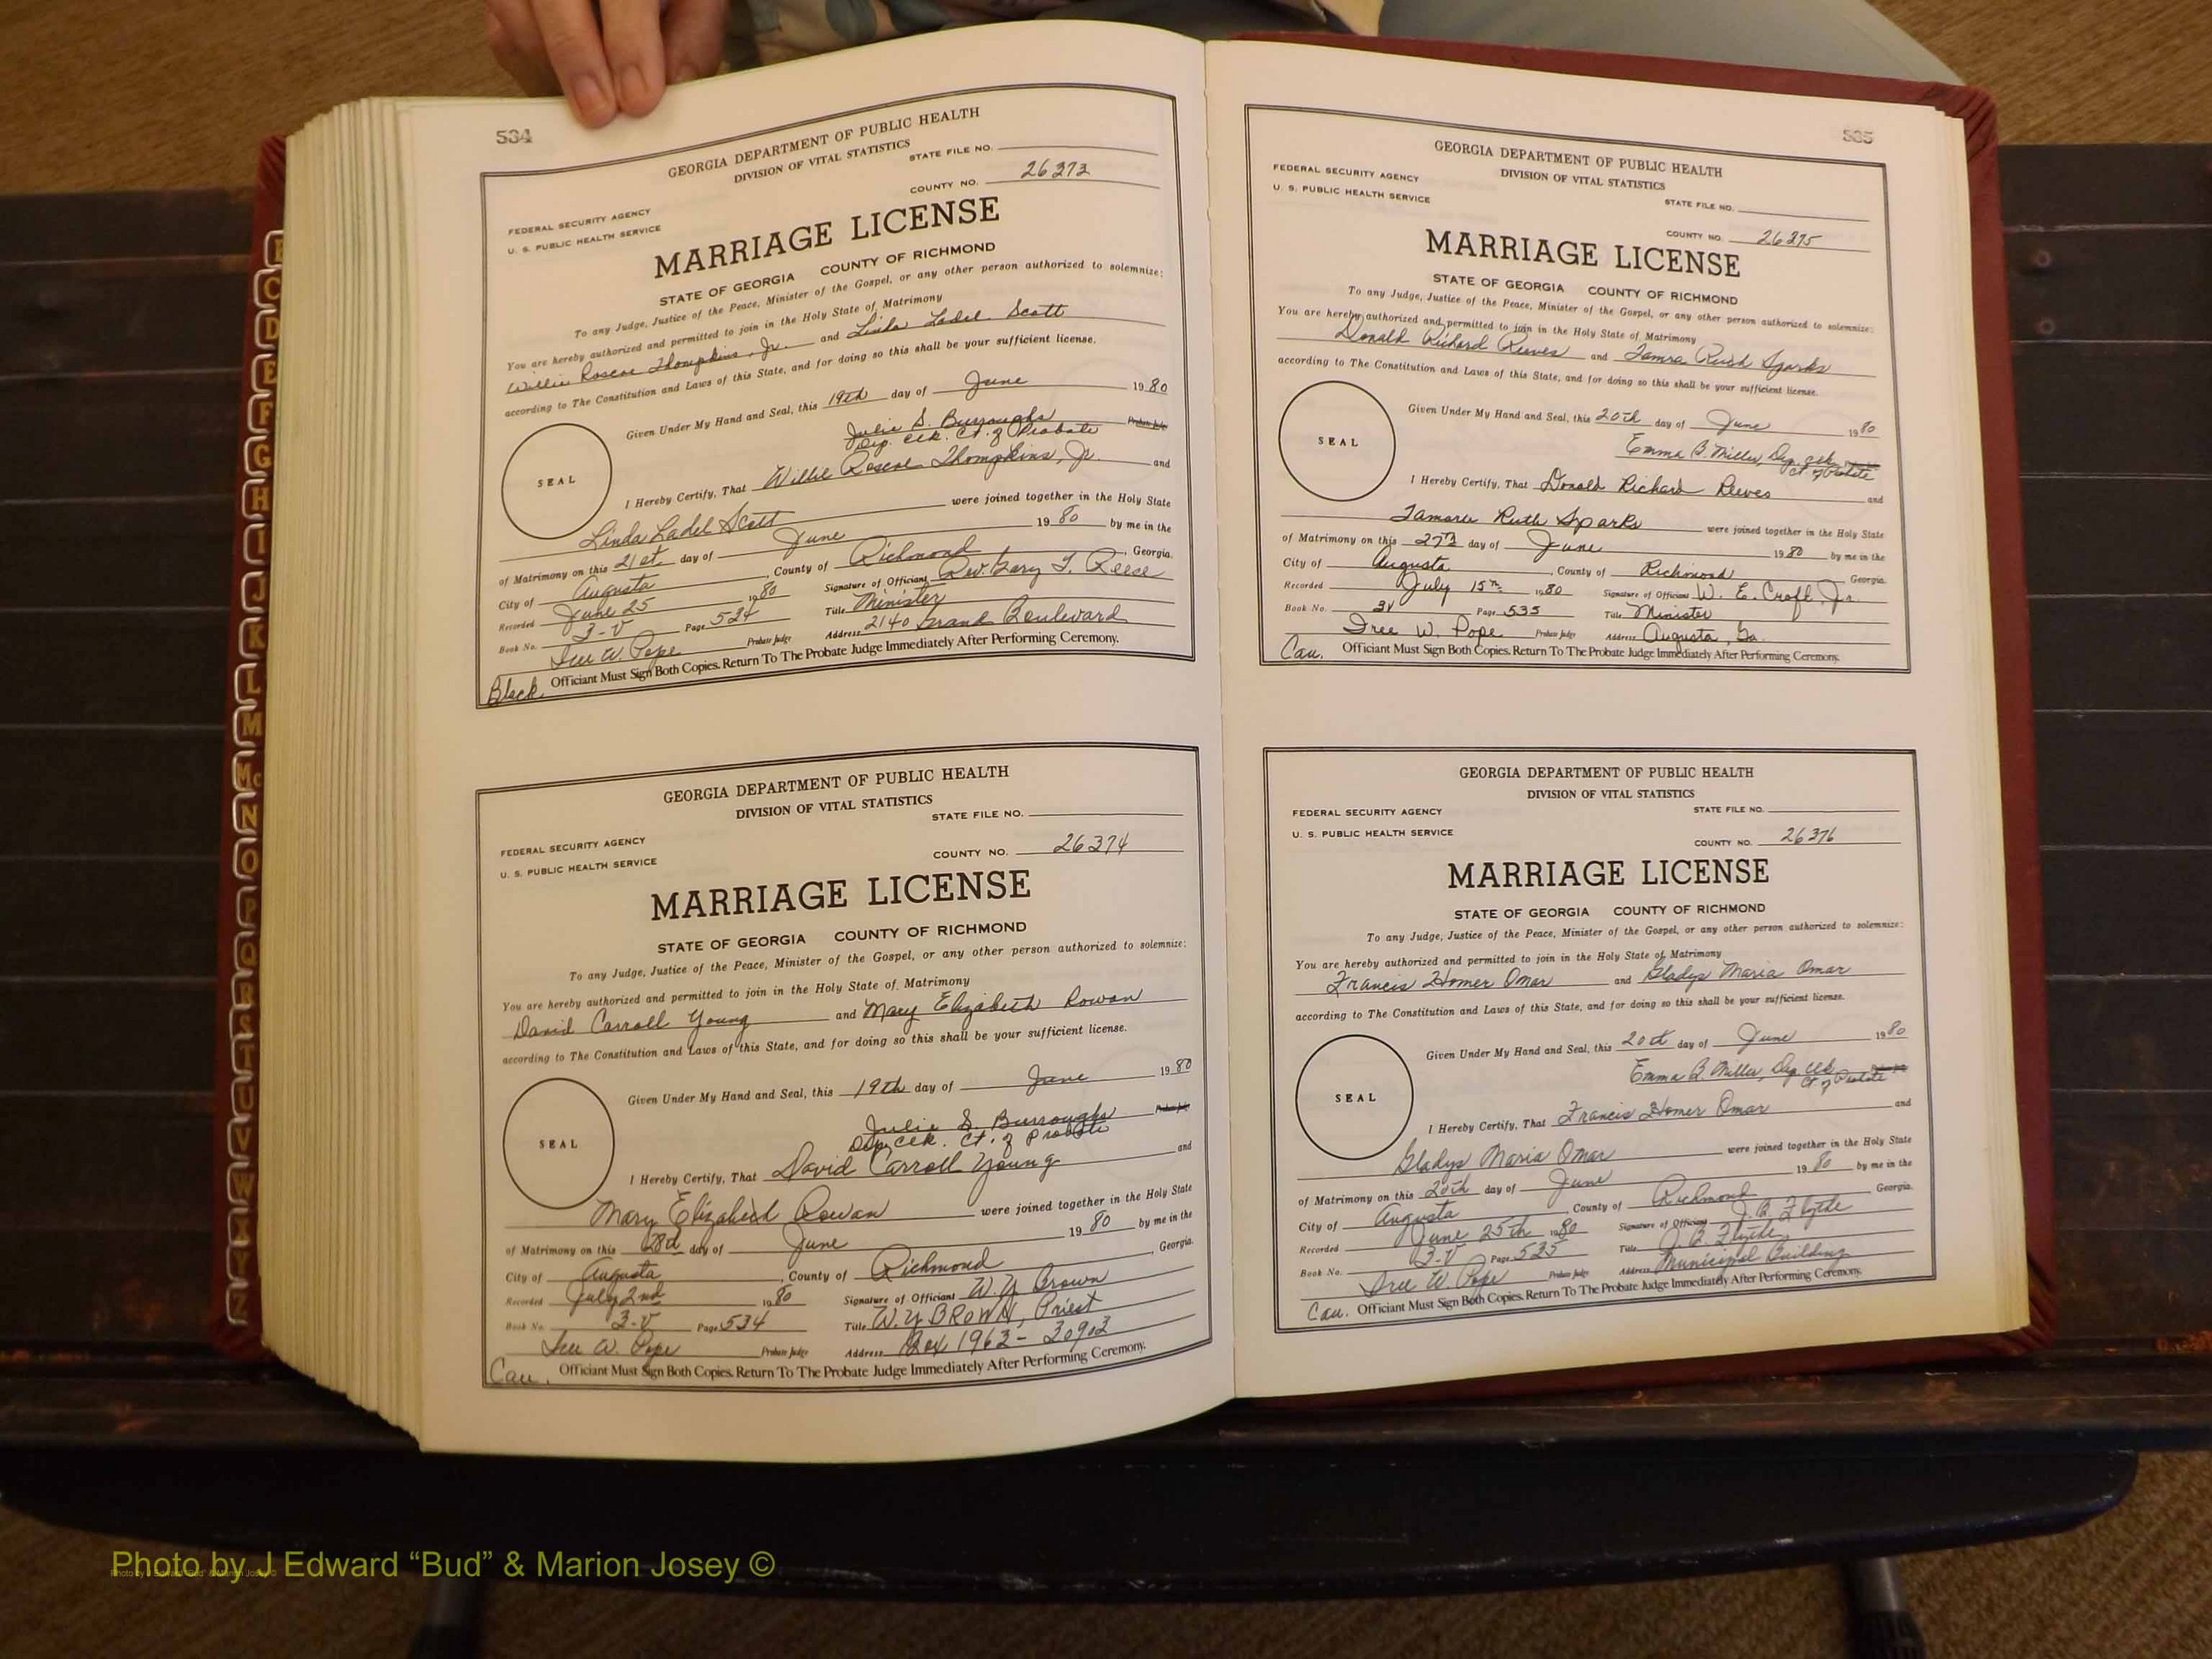 534
GEORGIA DEPARTMENT OF PUBLIC HEALTH
DIVISION OF VITAL STATISTICS
STATE FILE NO.
COUNTY NO. 26373
FEDERAL SECURITY AGENCY
U. S. PUBLIC HEALTH SERVICE
MARRIAGE LICENSE
STATE OF GEORGIA COUNTY OF RICHMOND
To any Judge, Justice of the Peace, Minister of the Gospel, or any other person authorized to solemnize:
You are hereby authorized and permitted to join in the Holy State of Matrimony
Willie Roscoe Thompkins, Jr. and Linda Ladel Scott
according to The Constitution and Laws of this State, and for doing so this shall be your sufficient license.
Given Under My Hand and Seal, this 19th day of June 1980
Julie S. Burroughs Probate Judge
Dep. Clk. Ct. of Probate
SEAL
I Hereby Certify, That Willie Roscoe Thompkins, Jr. and
Linda Ladel Scott were joined together in the Holy State
of Matrimony on this 21st day of June 1980 by me in the
City of Augusta, County of Richmond, Georgia.
Recorded June 25 1980 Signature of Officiant Rev. Gary T. Reese
Book No. 3-V Page 534 Title Minister
Probate Judge Address 2140 Grand Boulevard
Officiant Must Sign Both Copies. Return To The Probate Judge Immediately After Performing Ceremony.
Black
GEORGIA DEPARTMENT OF PUBLIC HEALTH
DIVISION OF VITAL STATISTICS
STATE FILE NO.
COUNTY NO. 26374
FEDERAL SECURITY AGENCY
U. S. PUBLIC HEALTH SERVICE
MARRIAGE LICENSE
STATE OF GEORGIA COUNTY OF RICHMOND
To any Judge, Justice of the Peace, Minister of the Gospel, or any other person authorized to solemnize:
You are hereby authorized and permitted to join in the Holy State of Matrimony
David Carroll Young and Mary Elizabeth Rowan
according to The Constitution and Laws of this State, and for doing so this shall be your sufficient license.
Given Under My Hand and Seal, this 19th day of June 1980
Julie S. Burroughs Probate Judge
Dep. Clk. Ct. of Probate
SEAL
I Hereby Certify, That David Carroll Young and
Mary Elizabeth Rowan were joined together in the Holy State
of Matrimony on this 28th day of June 1980 by me in the
City of Augusta, County of Richmond Georgia.
Recorded July 2nd 1980 Signature of Officiant W. Y. Brown
Book No. 3-V Page 534 Title W. Y. BROWN, Priest
Probate Judge Address Box 1963 - 30903
Cau. Officiant Must Sign Both Copies. Return To The Probate Judge Immediately After Performing Ceremony.
535
GEORGIA DEPARTMENT OF PUBLIC HEALTH
DIVISION OF VITAL STATISTICS
FEDERAL SECURITY AGENCY
U. S. PUBLIC HEALTH SERVICE
STATE FILE NO.
COUNTY NO. 26375
MARRIAGE LICENSE
STATE OF GEORGIA COUNTY OF RICHMOND
To any Judge, Justice of the Peace, Minister of the Gospel, or any other person authorized to solemnize:
You are hereby authorized and permitted to join in the Holy State of Matrimony
Donald Richard Reeves and Sparks
according to The Constitution and Laws of this State, and for doing so this shall be your sufficient license.
Given Under My Hand and Seal, this 20th day of June 1980
Emma B. Miller, Dep. Clk.
Ct of Probate
SEAL
I Hereby Certify, That Donald Richard Reeves and
Ruth Sparks were joined together in the Holy State
of Matrimony on this 27th day of June 1980 by me in the
City of Augusta, County of Richmond Georgia.
Recorded July 15th 1980 Signature of Officiant W. E. Croft, Jr.
Book No. 3V Page 535 Title Minister
W. Pope Probate Judge Address Augusta, Ga.
Cau. Officiant Must Sign Both Copies. Return To The Probate Judge Immediately After Performing Ceremony.
GEORGIA DEPARTMENT OF PUBLIC HEALTH
DIVISION OF VITAL STATISTICS
FEDERAL SECURITY AGENCY
STATE FILE NO.
U. S. PUBLIC HEALTH SERVICE
COUNTY NO. 26376
MARRIAGE LICENSE
STATE OF GEORGIA COUNTY OF RICHMOND
To any Judge, Justice of the Peace, Minister of the Gospel, or any other person authorized to solemnize:
You are hereby authorized and permitted to join in the Holy State of Matrimony
Francis Homer Omar and Gladys Maria Omar
according to The Constitution and Laws of this State, and for doing so this shall be your sufficient license.
Given Under My Hand and Seal, this 20th day of June 1980
Emma B. Miller, Dep Clk
Ct of Probate
SEAL
I Hereby Certify, That Francis Homer Omar and
Gladys Maria Omar were joined together in the Holy State
of Matrimony on this 20th day of June 1980 by me in the
City of Augusta, County of Richmond Georgia.
Recorded June 25th 1980 Signature of Officiant J. B. Flythe
Book No. 3-V Page 535 Title J. B Flythe
W. Pope Probate Judge Address Municipal Building
Cau. Officiant Must Sign Both Copies. Return To The Probate Judge Immediately After Performing Ceremony.
C
D
E
F
G
H
I
J
K
L
M
Mc
N
O
P
Q
R
S
T
U
V
W
X
Y
Z
Photo by J Edward “Bud” & Marion Josey ©